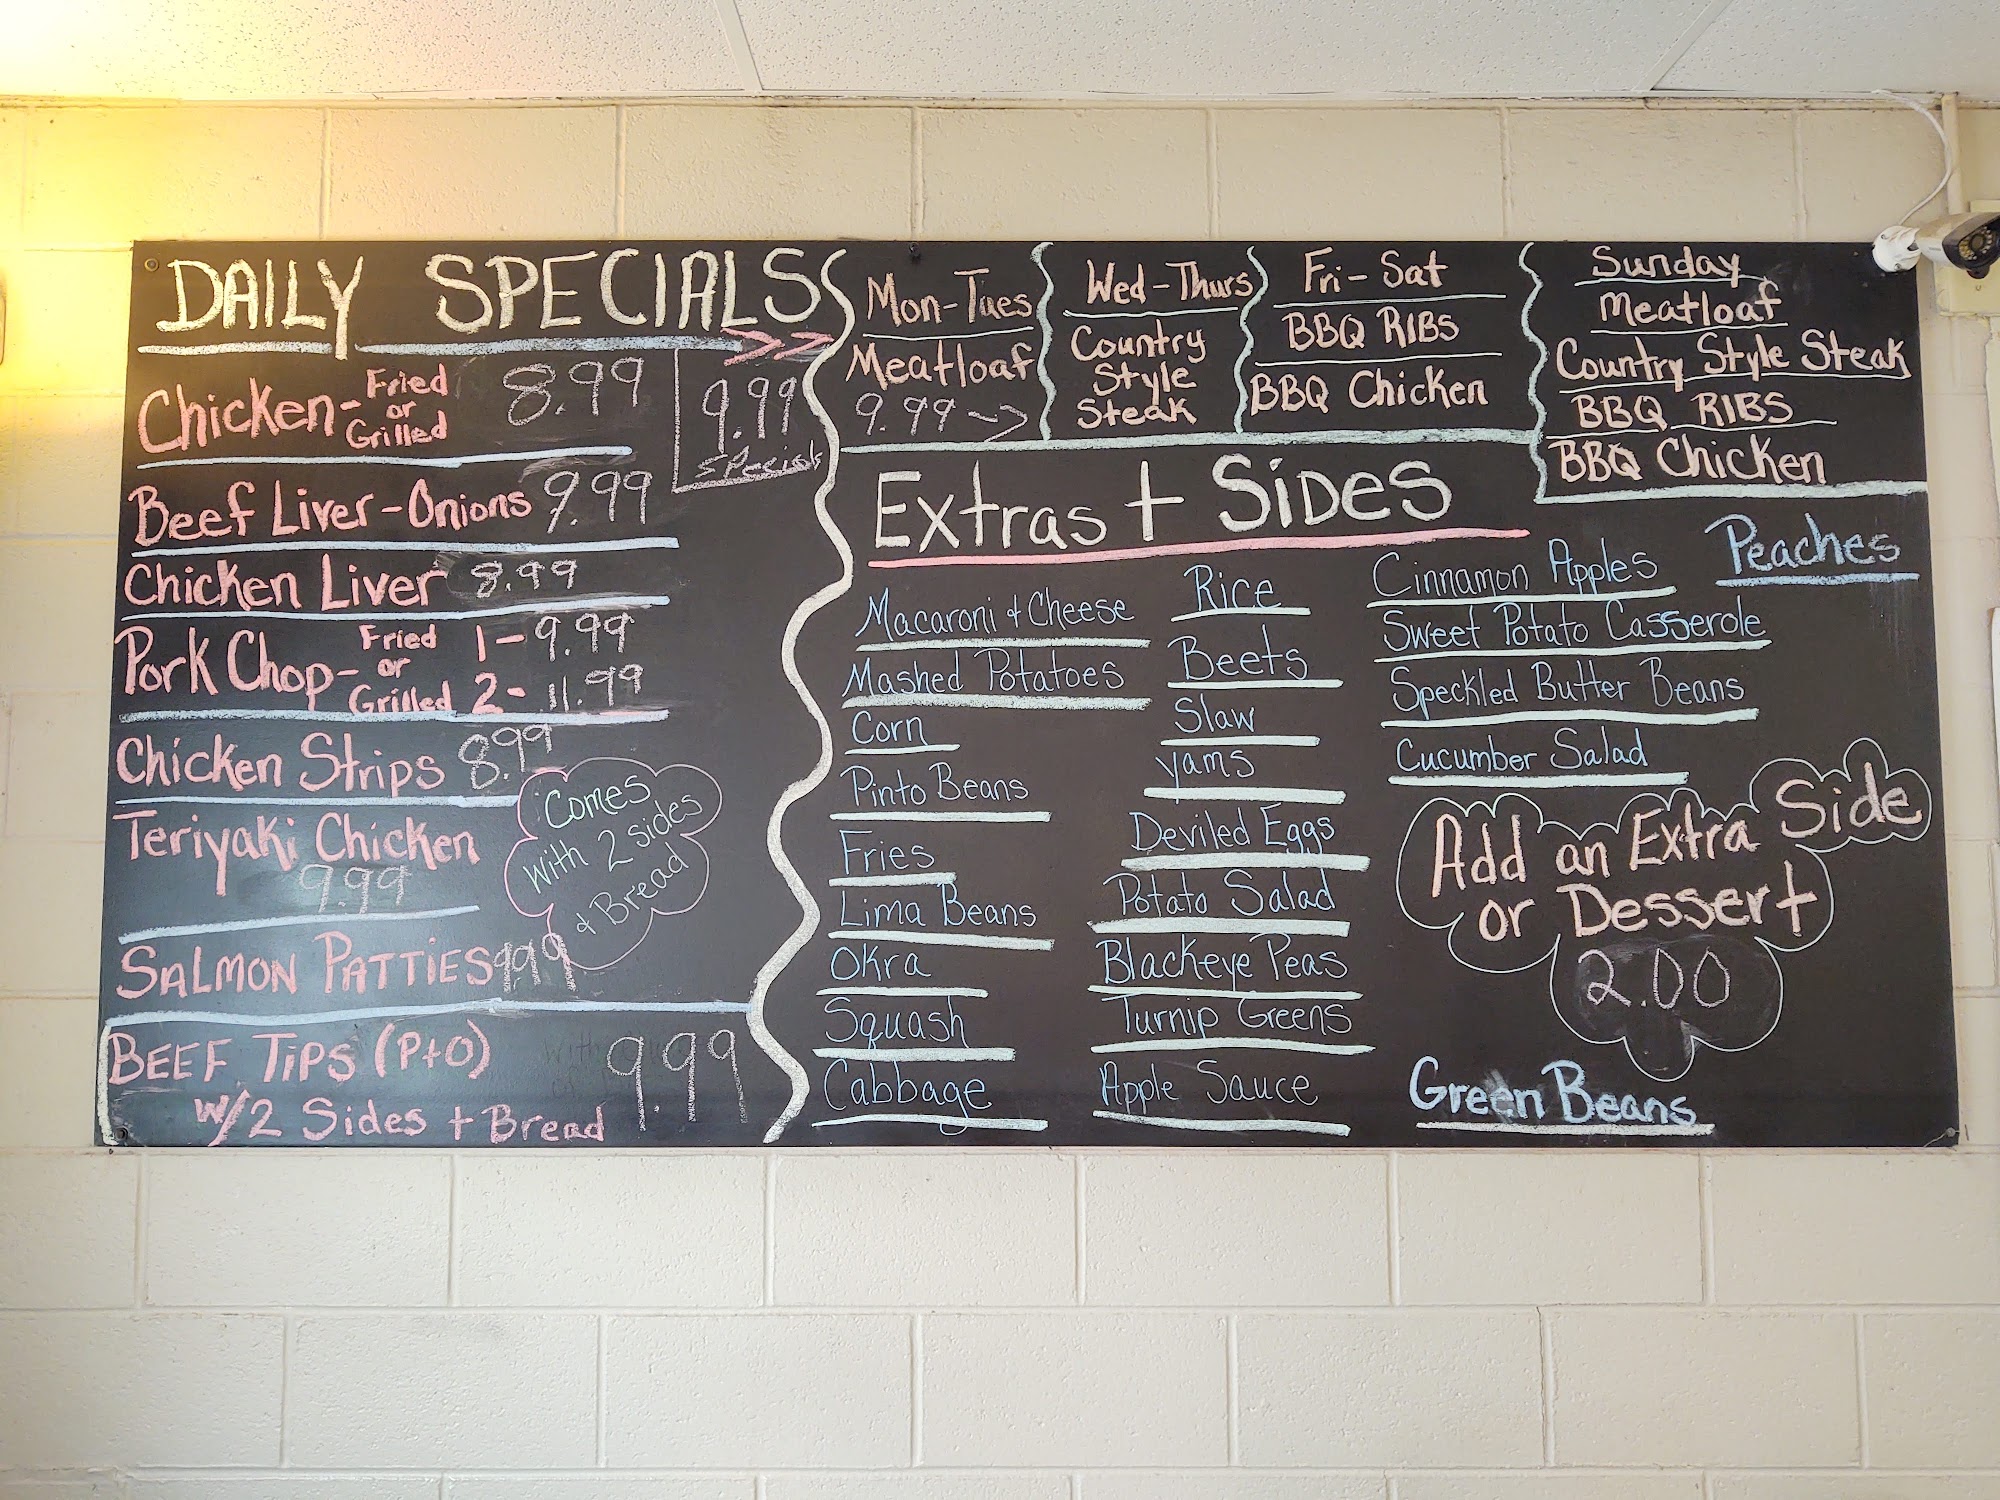 DAILY SPECIALS
>>
Chicken - Fried or Grilled 8.99
9.99
specials
Beef Liver - Onions 9.99
Chicken Liver 8.99
Pork Chop - Fried or Grilled
1 - 9.99
2 - 11.99
Chicken Strips 8.99
Teriyaki Chicken
9.99
Comes
With 2 sides
& Bread
SALMON PATTIES 9.99
BEEF TIPS (P+O) 9.99
w/2 Sides + Bread
Mon-Tues
Meatloaf
9.99 ->
Wed-Thurs
Country
Style
Steak
Fri-Sat
BBQ RIBS
BBQ Chicken
Sunday
Meatloaf
Country Style Steak
BBQ RIBS
BBQ Chicken
Extras + Sides
Macaroni & Cheese
Mashed Potatoes
Corn
Pinto Beans
Fries
Lima Beans
Okra
Squash
Cabbage
Rice
Beets
Slaw
Yams
Deviled Eggs
Potato Salad
Blackeye Peas
Turnip Greens
Apple Sauce
Cinnamon Apples
Sweet Potato Casserole
Speckled Butter Beans
Cucumber Salad
Peaches
Add an Extra Side
or Dessert
2.00
Green Beans